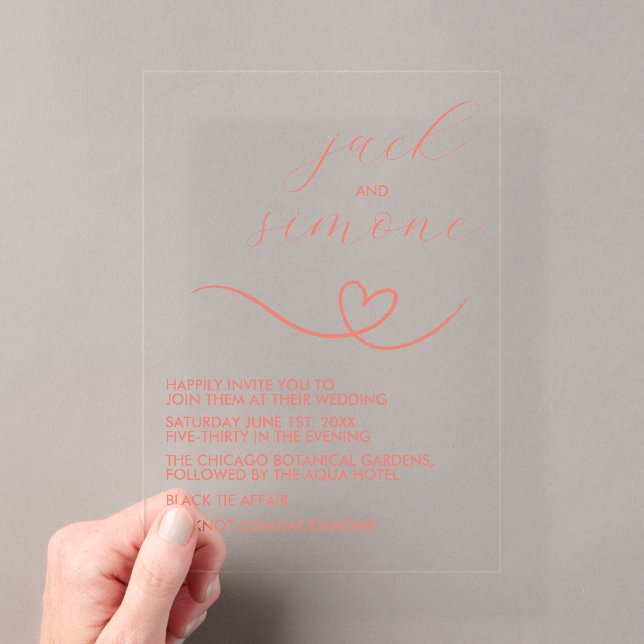 jack
AND
simone
HAPPILY INVITE YOU TO
JOIN THEM AT THEIR WEDDING
SATURDAY JUNE 1ST, 20XX
FIVE-THIRTY IN THE EVENING
THE CHICAGO BOTANICAL GARDENS,
FOLLOWED BY THE AQUA HOTEL
BLACK TIE AFFAIR